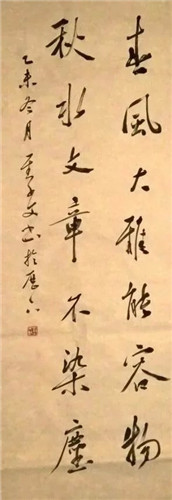 春風大雅能容物
秋水文章不染塵
乙未冬月